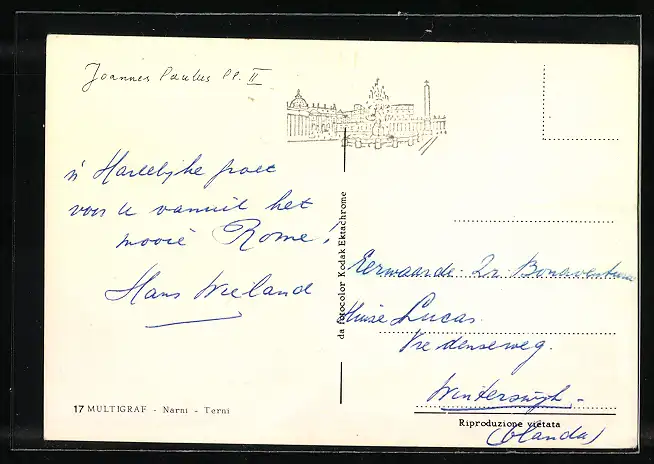 Joannes Paulus PP. II
'n Hartelijke groet
voor u vanuit het
mooie Rome!
Hans Wieland
17 MULTIGRAF - Narni - Terni
da fotocolor Kodak Ektachrome
Eerwaarde Zr. Bonaventura
Huize Lucas.
Vredenseweg.
Winterswijk -
Riproduzione vietata
(Olanda)